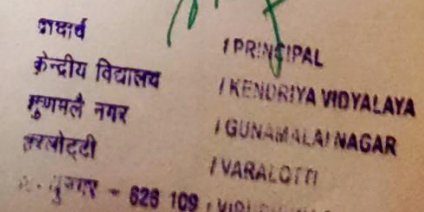 प्राचार्य / PRINCIPAL
केन्द्रीय विद्यालय / KENDRIYA VIDYALAYA
गुणमलै नगर / GUNAMALAI NAGAR
वरलोट्टी / VARALOTTI
626 109 /